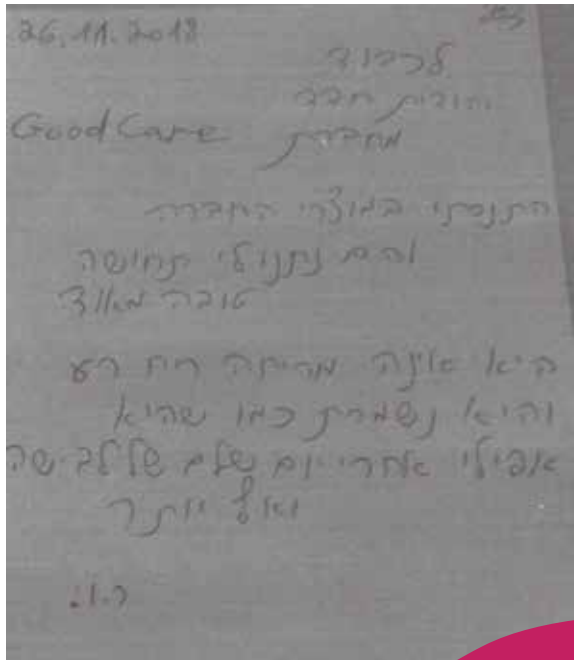 בס"ד
26.11.2018
לכבוד
יהודית חבר
מחברת GoodCare
התנסתי במוצרי החברה
והם נתנו לי תחושה
טובה מאוד
היא אינה מריחה ריח רע
והיא נשמרת כמו שהיא
אפילו אחרי יום שלם של לבישה
ואף יותר